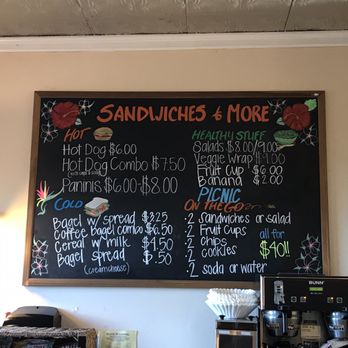 SANDWICHES & MORE
HOT
Hot Dog $6.00
Hot Dog Combo $7.50
Paninis $6.00-$8.00
COLD
Bagel w/ spread $3.25
Coffee Bagel combo $6.50
Cereal w/ milk $4.50
Bagel spread $.50
(creamcheese)
HEALTHY STUFF
Salads $8.00/9.00
Veggie Wrap $9.00
Fruit Cup $6.00
Banana $2.00
PICNIC
ON THE GO
·2 Sandwiches or salad
·2 Fruit Cups
·2 chips
·2 cookies
·2 soda or water
all for
$40!!
BUNN